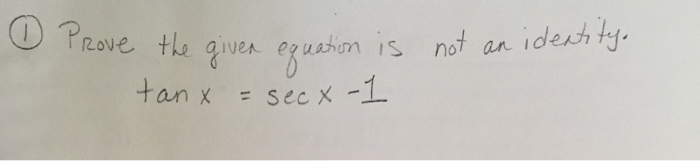 ① Prove the given equation is not an identity.
tan x = sec x - 1